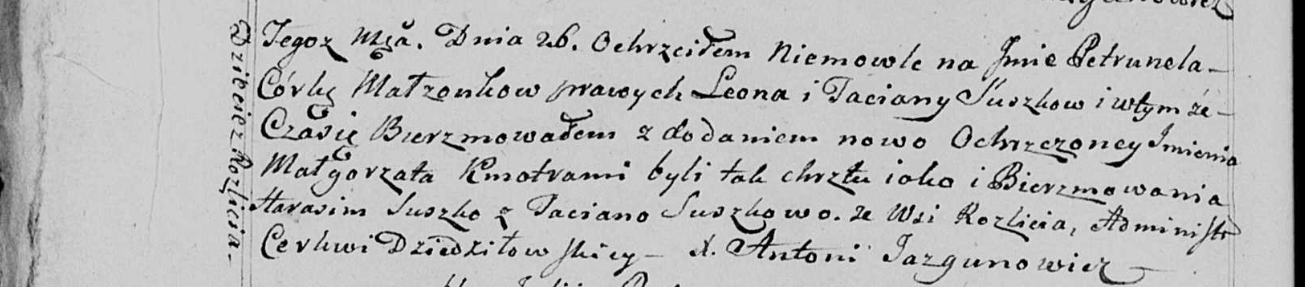 Tegoż Mça. Dnia 26. Ochrzciłem Niemowle na Jmie Petrunela
Córkę Małżonkow prawych Leona i Taciany Suszkow i wtym że
Czasię Bierzmowałem z dodaniem nowo Ochrzczoney Jmienia
Małgorzata Kmotrami byli tak chrztu iako i Bierzmowania
Harasim Suszko z Taciano Suszkowo. ze Wsi Rozlicia, Administr
Cerkwi Dziedziłowskiey - X. Antoni Jazgunowicz